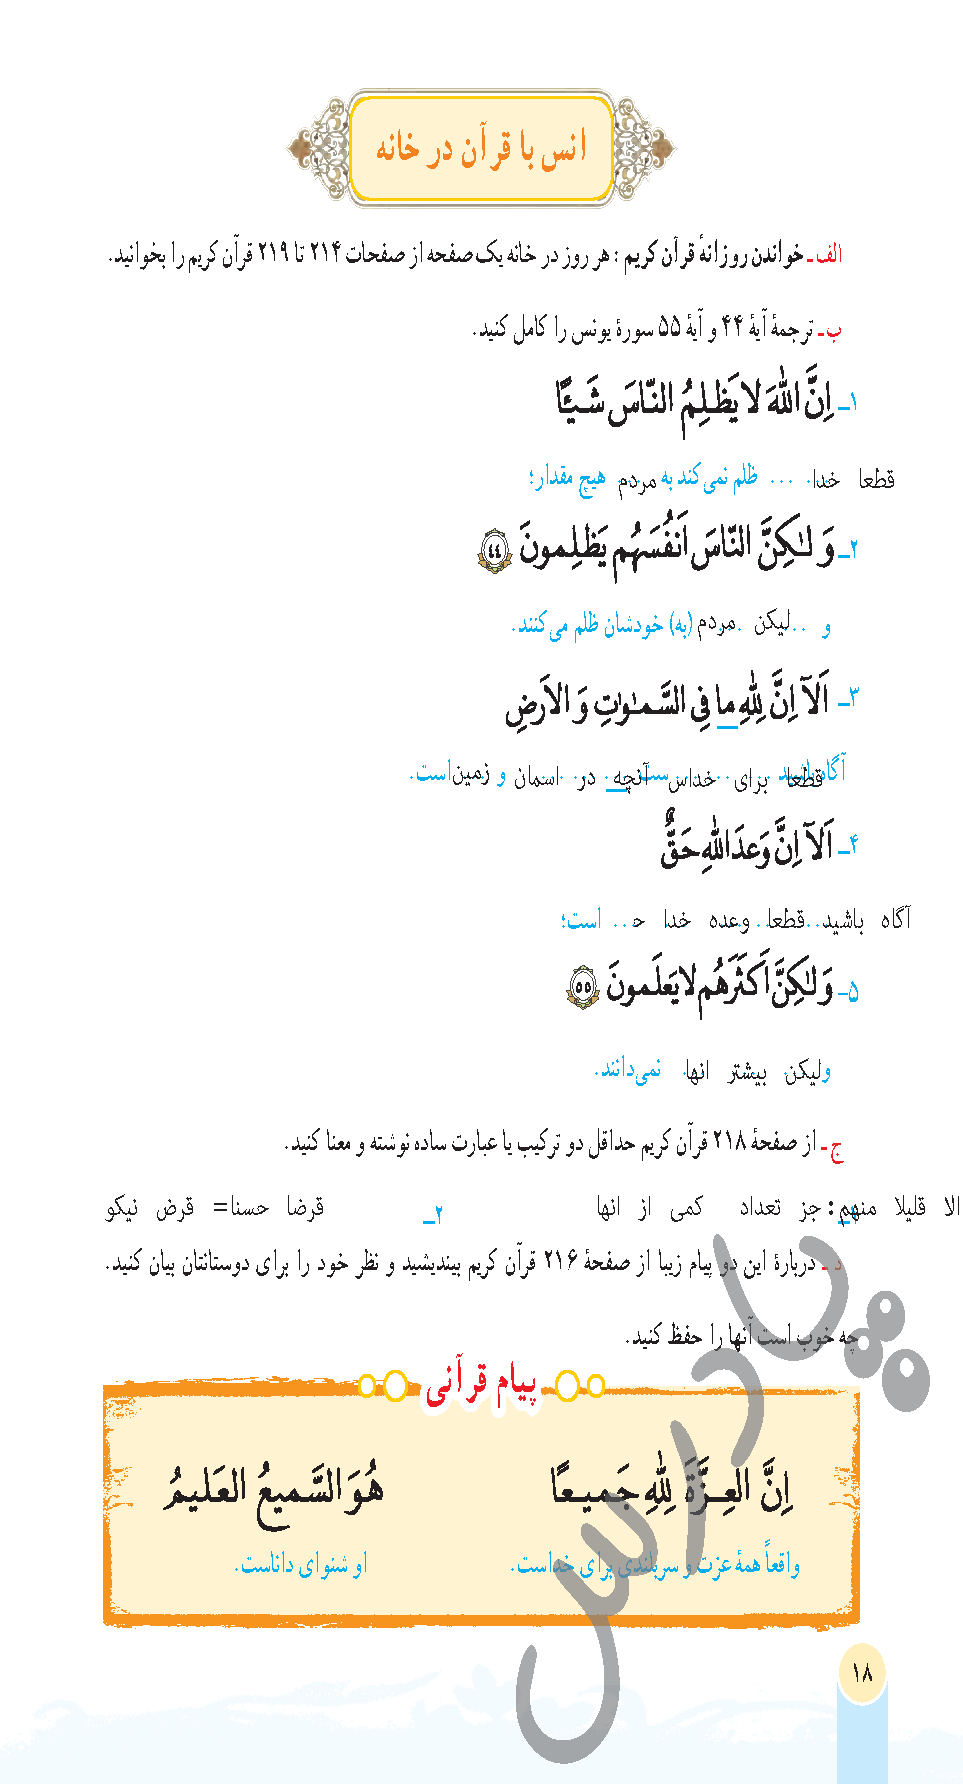 انس با قرآن در خانه
الف ـ خواندن روزانهٔ قرآن کریم : هر روز در خانه یک صفحه از صفحات ۲۱۴ تا ۲۱۹ قرآن کریم را بخوانید.
ب ـ ترجمهٔ آیهٔ ۴۴ و آیهٔ ۵۵ سورهٔ یونس را کامل کنید.
۱ـ اِنَّ اللّٰهَ لا يَظلِمُ النّاسَ شَيـًٔا
قطعا خدا ... ظلم نمی‌کند به مردم هیچ مقدار؛
۲ـ وَ لٰكِنَّ النّاسَ اَنفُسَهُم يَظلِمونَ ٤٤
و ..لیکن مردم (به) خودشان ظلم می‌کنند.
۳ـ اَلآ اِنَّ لِلّٰهِ ما فِى السَّمٰوٰتِ وَ الاَرضِ
آگاه باشید قطعا برای خداس ست آنچه در اسمان و زمین است.
۴ـ اَلآ اِنَّ وَعدَ اللّٰهِ حَقٌّ
آگاه باشید..قطعا وعده خدا حـ... است؛
۵ـ وَ لٰكِنَّ أَكثَرَهُم لا يَعلَمونَ ٥٥
ولیکن بیشتر انها نمی‌دانند.
ج ـ از صفحهٔ ۲۱۸ قرآن کریم حداقل دو ترکیب یا عبارت ساده نوشته و معنا کنید.
الا قلیلا منهم: جز تعداد کمی از انها ۲ـ قرضا حسنا= قرض نیکو
د ـ دربارهٔ این دو پیام زیبا از صفحهٔ ۲۱۶ قرآن کریم بیندیشید و نظر خود را برای دوستانتان بیان کنید.
چه خوب است آنها را حفظ کنید.
پیام قرآنی
اِنَّ العِزَّةَ لِلّٰهِ جَميعًا هُوَ السَّميعُ العَليمُ
واقعاً همهٔ عزت و سربلندی برای خداست. او شنوای داناست.
پادرس
۱۸